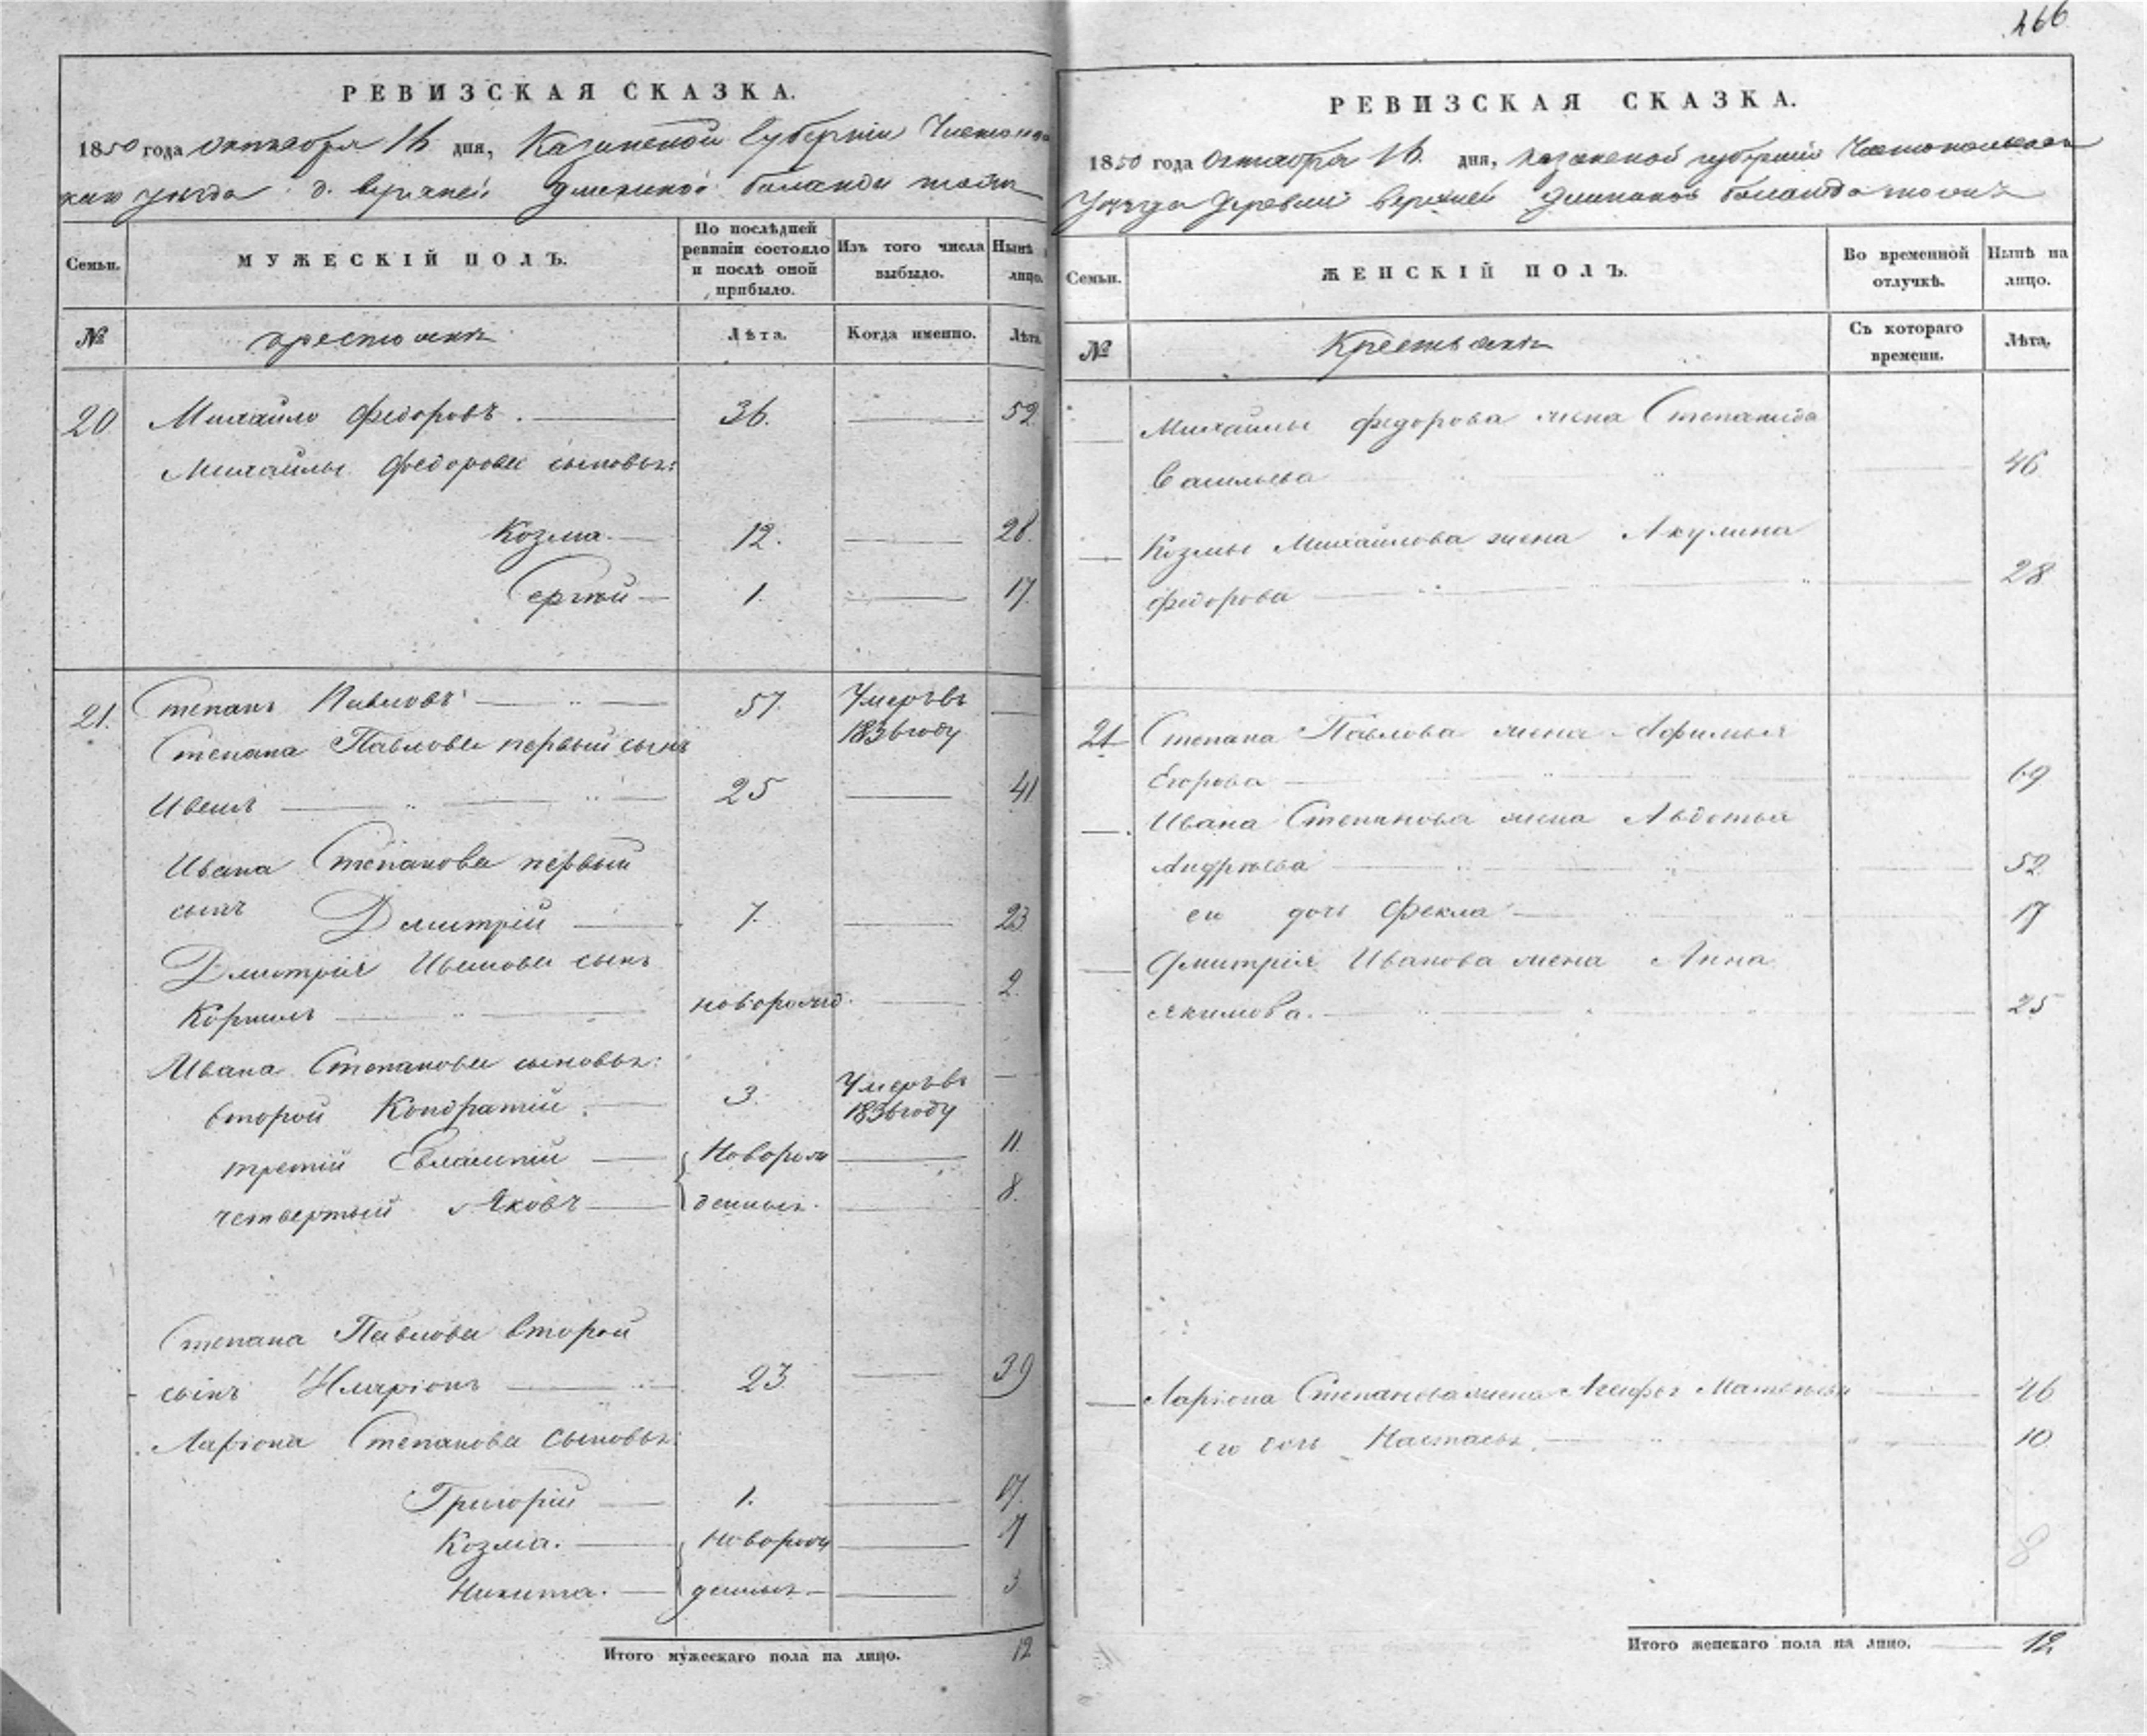 266
РЕВИЗСКАЯ СКАЗКА.
1850 года октября 16 дня, Казанской Губерніи Чистополь
скаго уѣзда д. верхней
Семьи.
МУЖЕСКІЙ ПОЛЪ.
По послѣдней ревизіи состояло и послѣ оной прибыло.
Изъ того числа выбыло.
Нынѣ лицо.
№
крестьяне
Лѣта.
Когда именно.
Лѣта
20 Михайло Федоровъ. 36. 52
Михайлы Федорова сыновья:
Козма 12. 28.
Сергѣй 1. 17.
21. Степанъ Павловъ 57. Умеръ въ
1836 году
Степана Павлова первый сынъ
Иванъ 25 41
Ивана Степанова первый
сынъ Дмитрій 7. 23
Дмитрія Иванова сынъ
Корнилъ новорожд. 2.
Ивана Степанова сыновья:
второй Кондратій. 3. Умеръ въ
1836 году
третій Евлампій Новорож 11.
четвертый Яковъ денныя. 8.
Степана Павлова второй
сынъ Иларіонъ 23 39
Ларіона Степанова сыновья:
Григорій 1. 17.
Козма. новорож 7
Никита. денныя 3
Итого мужескаго пола на лицо. 12
РЕВИЗСКАЯ СКАЗКА.
1850 года Октября 16. дня, казанской губерніи Чистопольскаго
Уѣзда Деревни верхней
Семьи.
ЖЕНСКІЙ ПОЛЪ.
Во временной отлучкѣ.
Нынѣ на лицо.
№
Крестьяне
Съ котораго времени.
Лѣта.
Михайлы федорова жена Степанида
Васильева 46
Козмы Михайлова жена Акулина
федорова 28
21 Степана Павлова жена Афимья
Егорова 69
Ивана Степанова жена Авдотья
Андрѣева 52
его дочь Фекла 17
Дмитрія Иванова жена Анна
Якимова. 25
Ларіона Степанова жена Матвѣева 46
его дочь Настасья. 10
8
Итого женскаго пола на лицо. 12